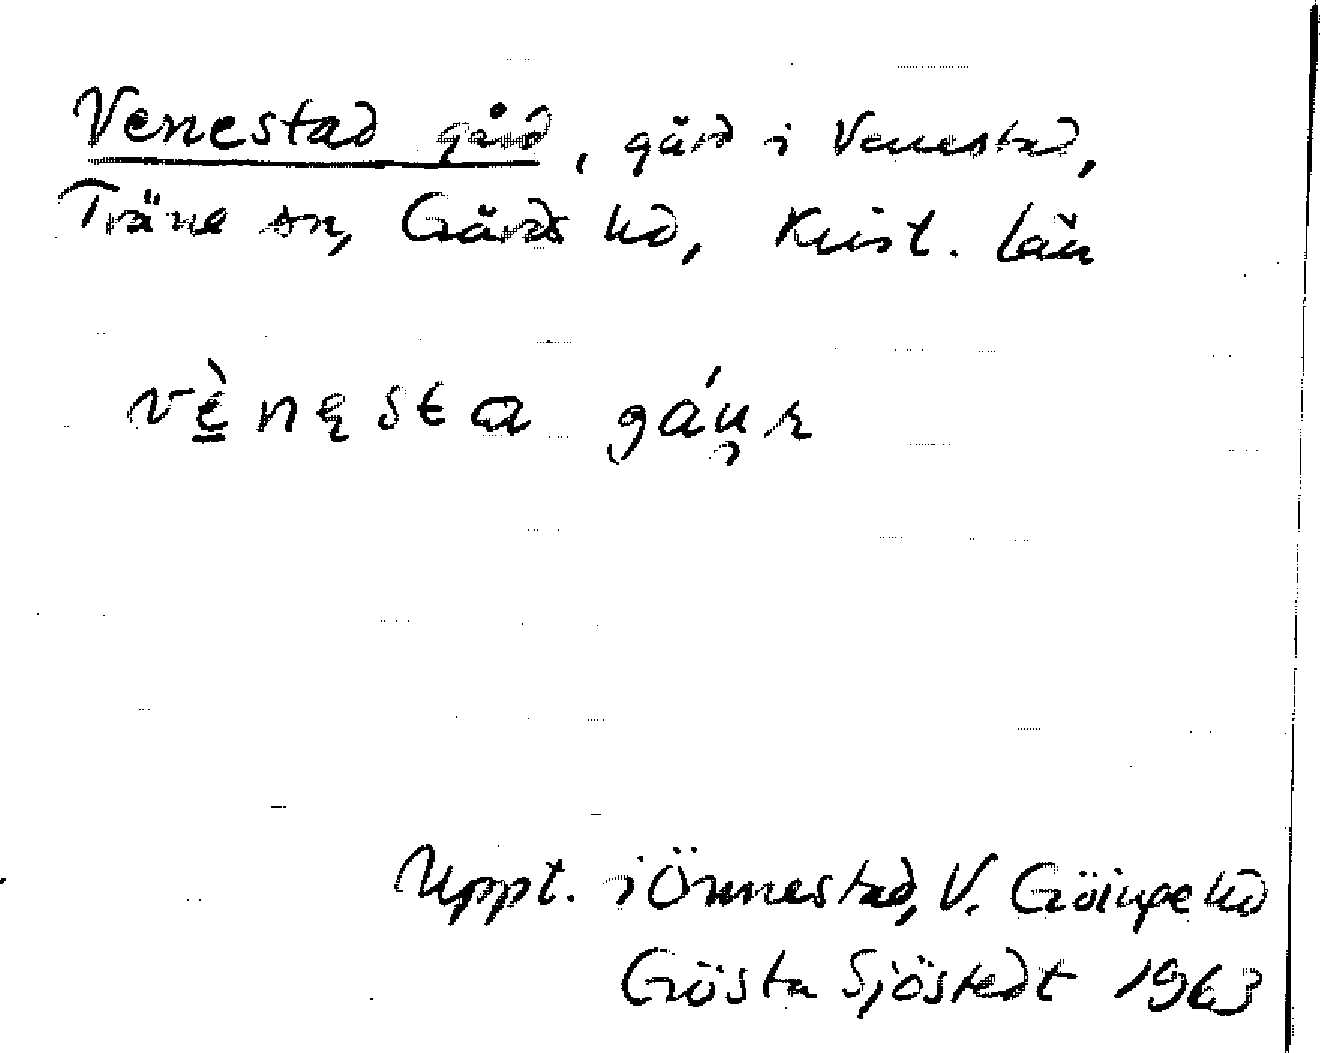 Venestad gård, gård i Venestad,
Träne sn, Gärds hd, Krist. län
vènęsta gáu̯r
Uppt. i Önnestad, V. Göinge hd
Gösta Sjöstedt 1963